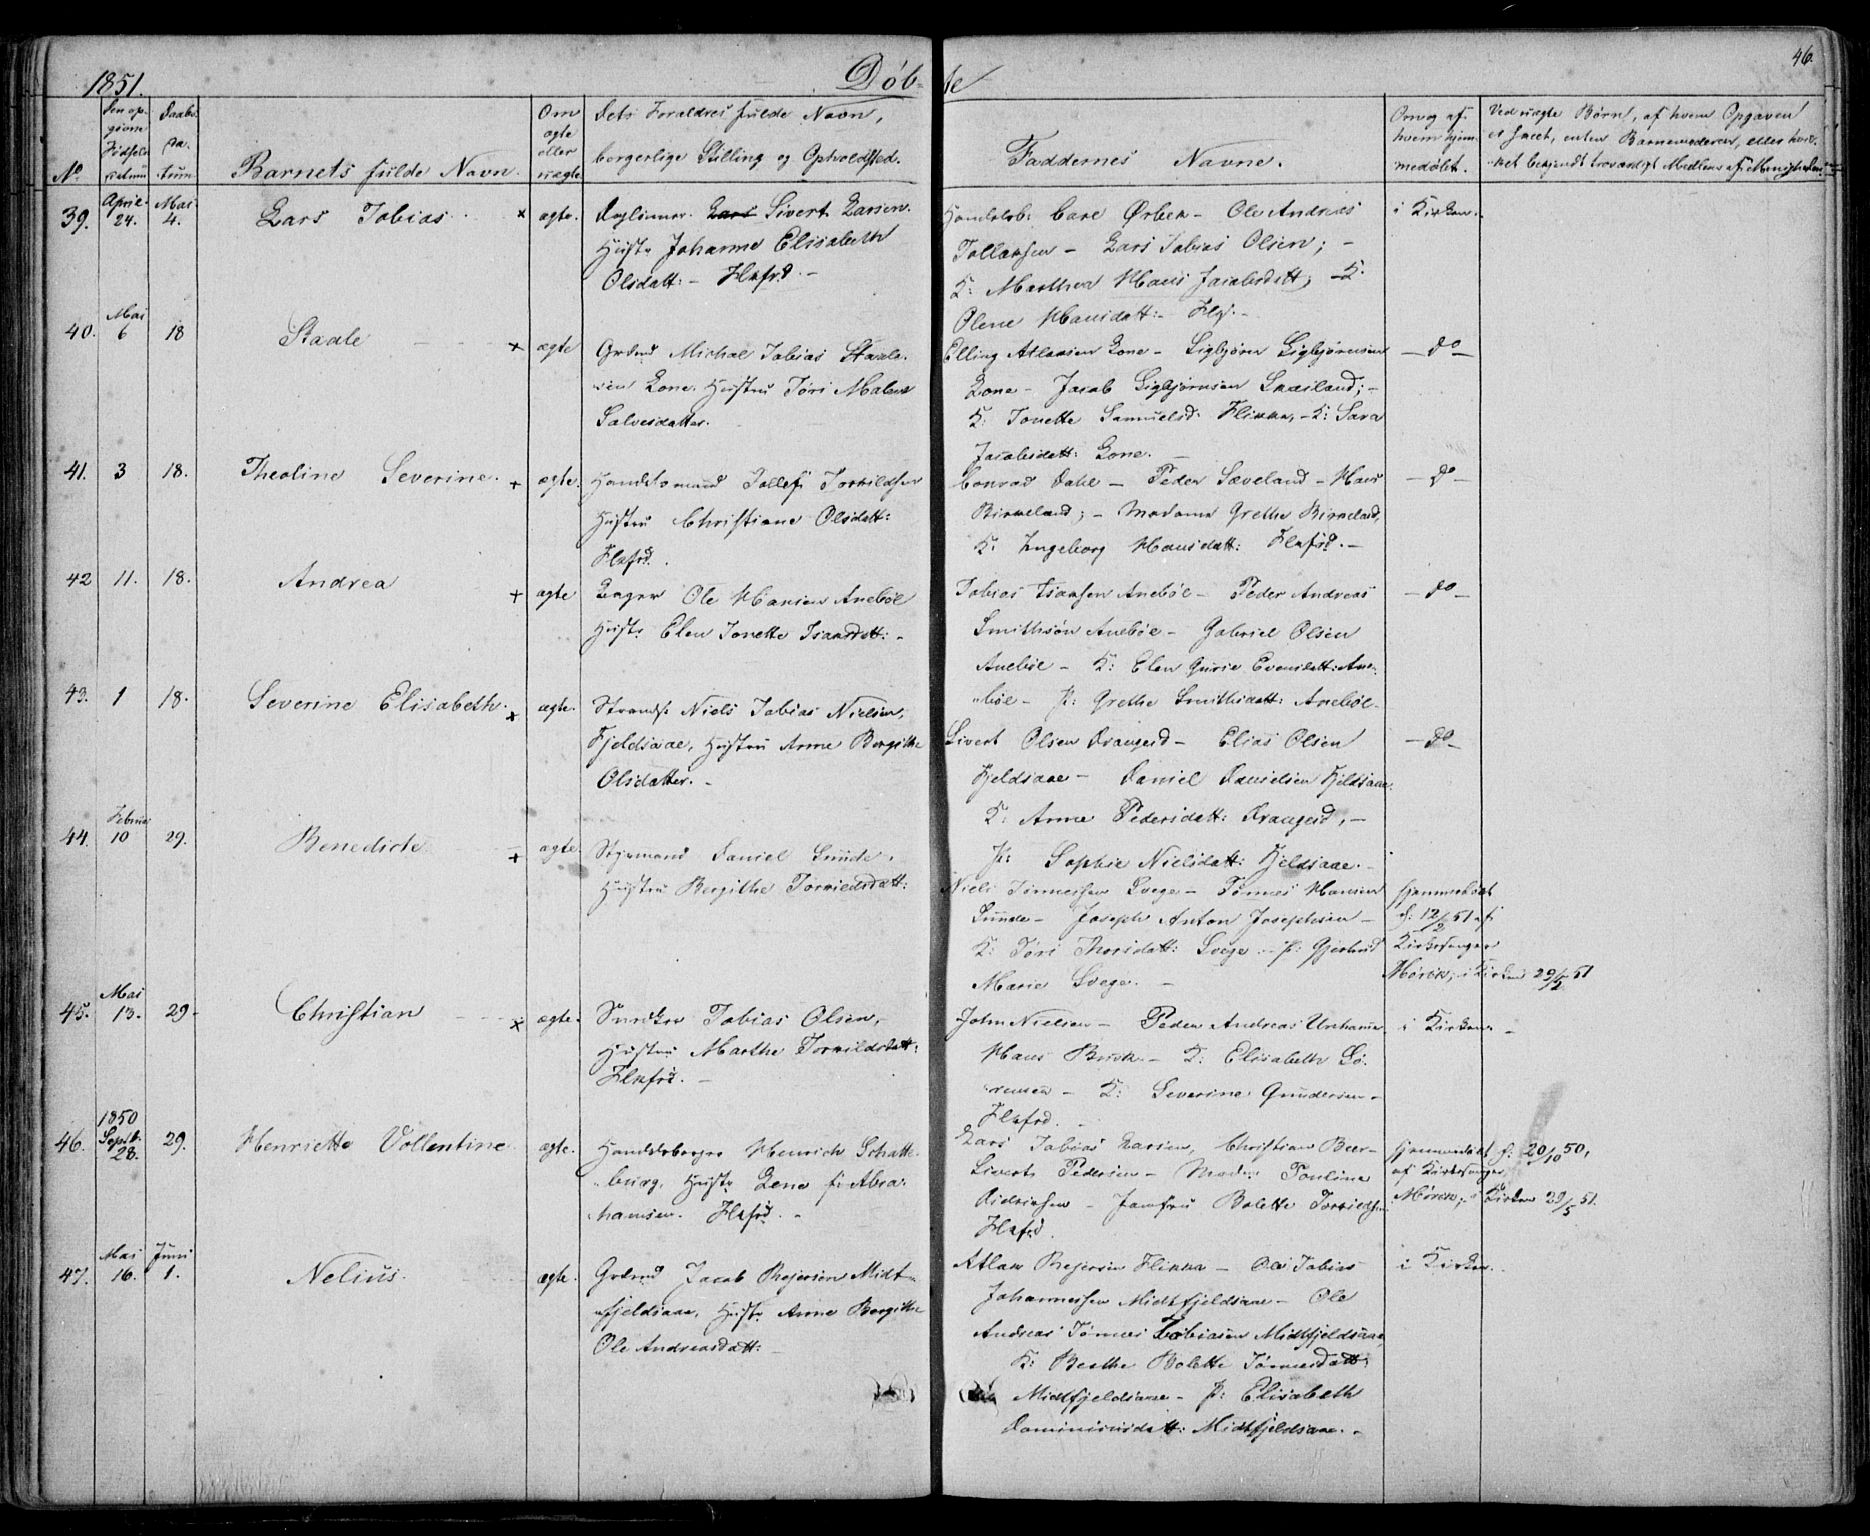 1851.
Døb-
te
46.
No
Den op-
givne
Fødsels
Datum
Daabs
Da-
tum.
Barnets fulde Navn.
Om
ægte
eller
uægte
Dets Forældres fulde Navn,
borgerlige Stilling og Opholdsted.
Faddernes Navne.
Om og af
hvem hjem-
medøbt.
Ved uægte Børn, af hvem Opgaven
er skeet, enten Barnemoderen, eller hvil-
ket bekjendt troværdigt Medlem af Menigheden.
39.
April
24.
Mai
4.
Lars Tobias
× ægte.
Daglønner. Lars Sivert Larsen.
Hustr Johanne Elisabeth
Olsdatt: - Flkfrd. -
Handelsb: Carl Ørbek - Ole Andreas
Tollaksen - Lars Tobias Olsen; -
K: Marthe Hans Jacobsdatt; - K:
Olene Hansdatt: - Flkf. -
i Kirken.
40.
Mai
6
18
Staale
× ægte
Grdmd Michal Tobias Staale-
sen Lone. Hustru Tøri Malene
Salvesdatter.
Elling Atlaksen Lone - Sigbjørn Sigbjørnsen
Lone - Jacob Sigbjørnsen Skailand; -
K: Tonette Samuelsd. Flikka, - K: Sara
Jacobsdatt: Lone. -
- do -
41.
3
18.
Theoline Severine.
+ ægte.
Handelsmand Tollef Torkildsen
Hustru Christiane Olsdatt:
Flkfrd.
Conrad Dahl - Peder Sæveland - Hans
Birkeland; - Madame Grethe Birkeland,
K: Ingeborg Hansdatt: Flkfrd. -
- do -
42
11.
18.
Andrea
+ ægte
Enger Ole Hansen Anebøe
Hustr Elen Tonette Isaksdatt: -
Tobias Isaksen Anebøe - Peder Andreas
Smithsøn Anebøe - Gabriel Olsen
Anebøe - K: Elen Gurie Evensdatt: Ane-
bøe - P: Grethe Smithsdatt: Anebøe -
- do -
43.
1
18.
Severine Elisabeth.
× ægte.
Strands. Niels Tobias Nielsen,
Fjeldsaae, Hustru Anne Bergithe
Olsdatter. -
Sivert Olsen Drangeid - Elias Olsen
Fjeldsaae - Daniel Danielsen Fjeldsaae.
K: Anne Pedersdatt: Drangeid, -
P: Sophie Nielsdatt: Fjeldsaae. -
- do -
44.
Februar
10
29.
Benedicte
+ ægte.
Styrmand Daniel Sunde,
Hustru Bergithe Torkildsdatt:
Niels Tønnessen Svege - Tønnes Hansen
Sunde - Joseph Anton Josephsen -
K: Tøri Thorsdatt: Svege - P: Gjertrud
Marie Svege. -
hjemmedøbt
d: 12/2 51 af
Kirkesanger
Mørck; i Kirken 29/5 51
45.
Mai
13.
29.
Christian
× ægte.
Snedker Tobias Olsen,
Hustru Marthe Torkildsdatt:
Flkfrd. -
John Nielsen - Peder Andreas Urehamn
Hans Buch - K: Elisabeth Sø-
rensen - K: Severine Gundersen -
Flkfrd. -
i Kirken. -
46.
1850
Septb.
28.
29.
Henriette Vollentine
ægte.
Handelsborger Henrich Schatte-
burg, Hustr Lene f: Abra-
hamsen. Flkfrd. -
Lars Tobias Larsen, Christian Beer -
Sivert Pedersen - Mad: Pouline
Didriksen - Jomfru Bolette Torkilds.
Flkfrd.
hjemmedøbt d: 20/10 50,
af Kirkesanger
Mørck; i Kirken 29/5 51.
47.
Mai
16.
Juni
1.
Nelius.
ægte.
Grdmd Jacob Reiersen Midt-
fjeldsaae, Hustr Anne Bergithe
Ole Andreasdatt: -
Atlak Reiersen Flikka - Ole Tobias
Johannessen Midtfjeldsaae - Ole
Andreas Tønnes Tobiasen Midtfjeldsaae,
K: Berthe Bolette Tønnesdatt:
Midtfjeldsaae - P: Elisabeth
Dominicusdatt: Midtfjeldsaae. -
i Kirken.